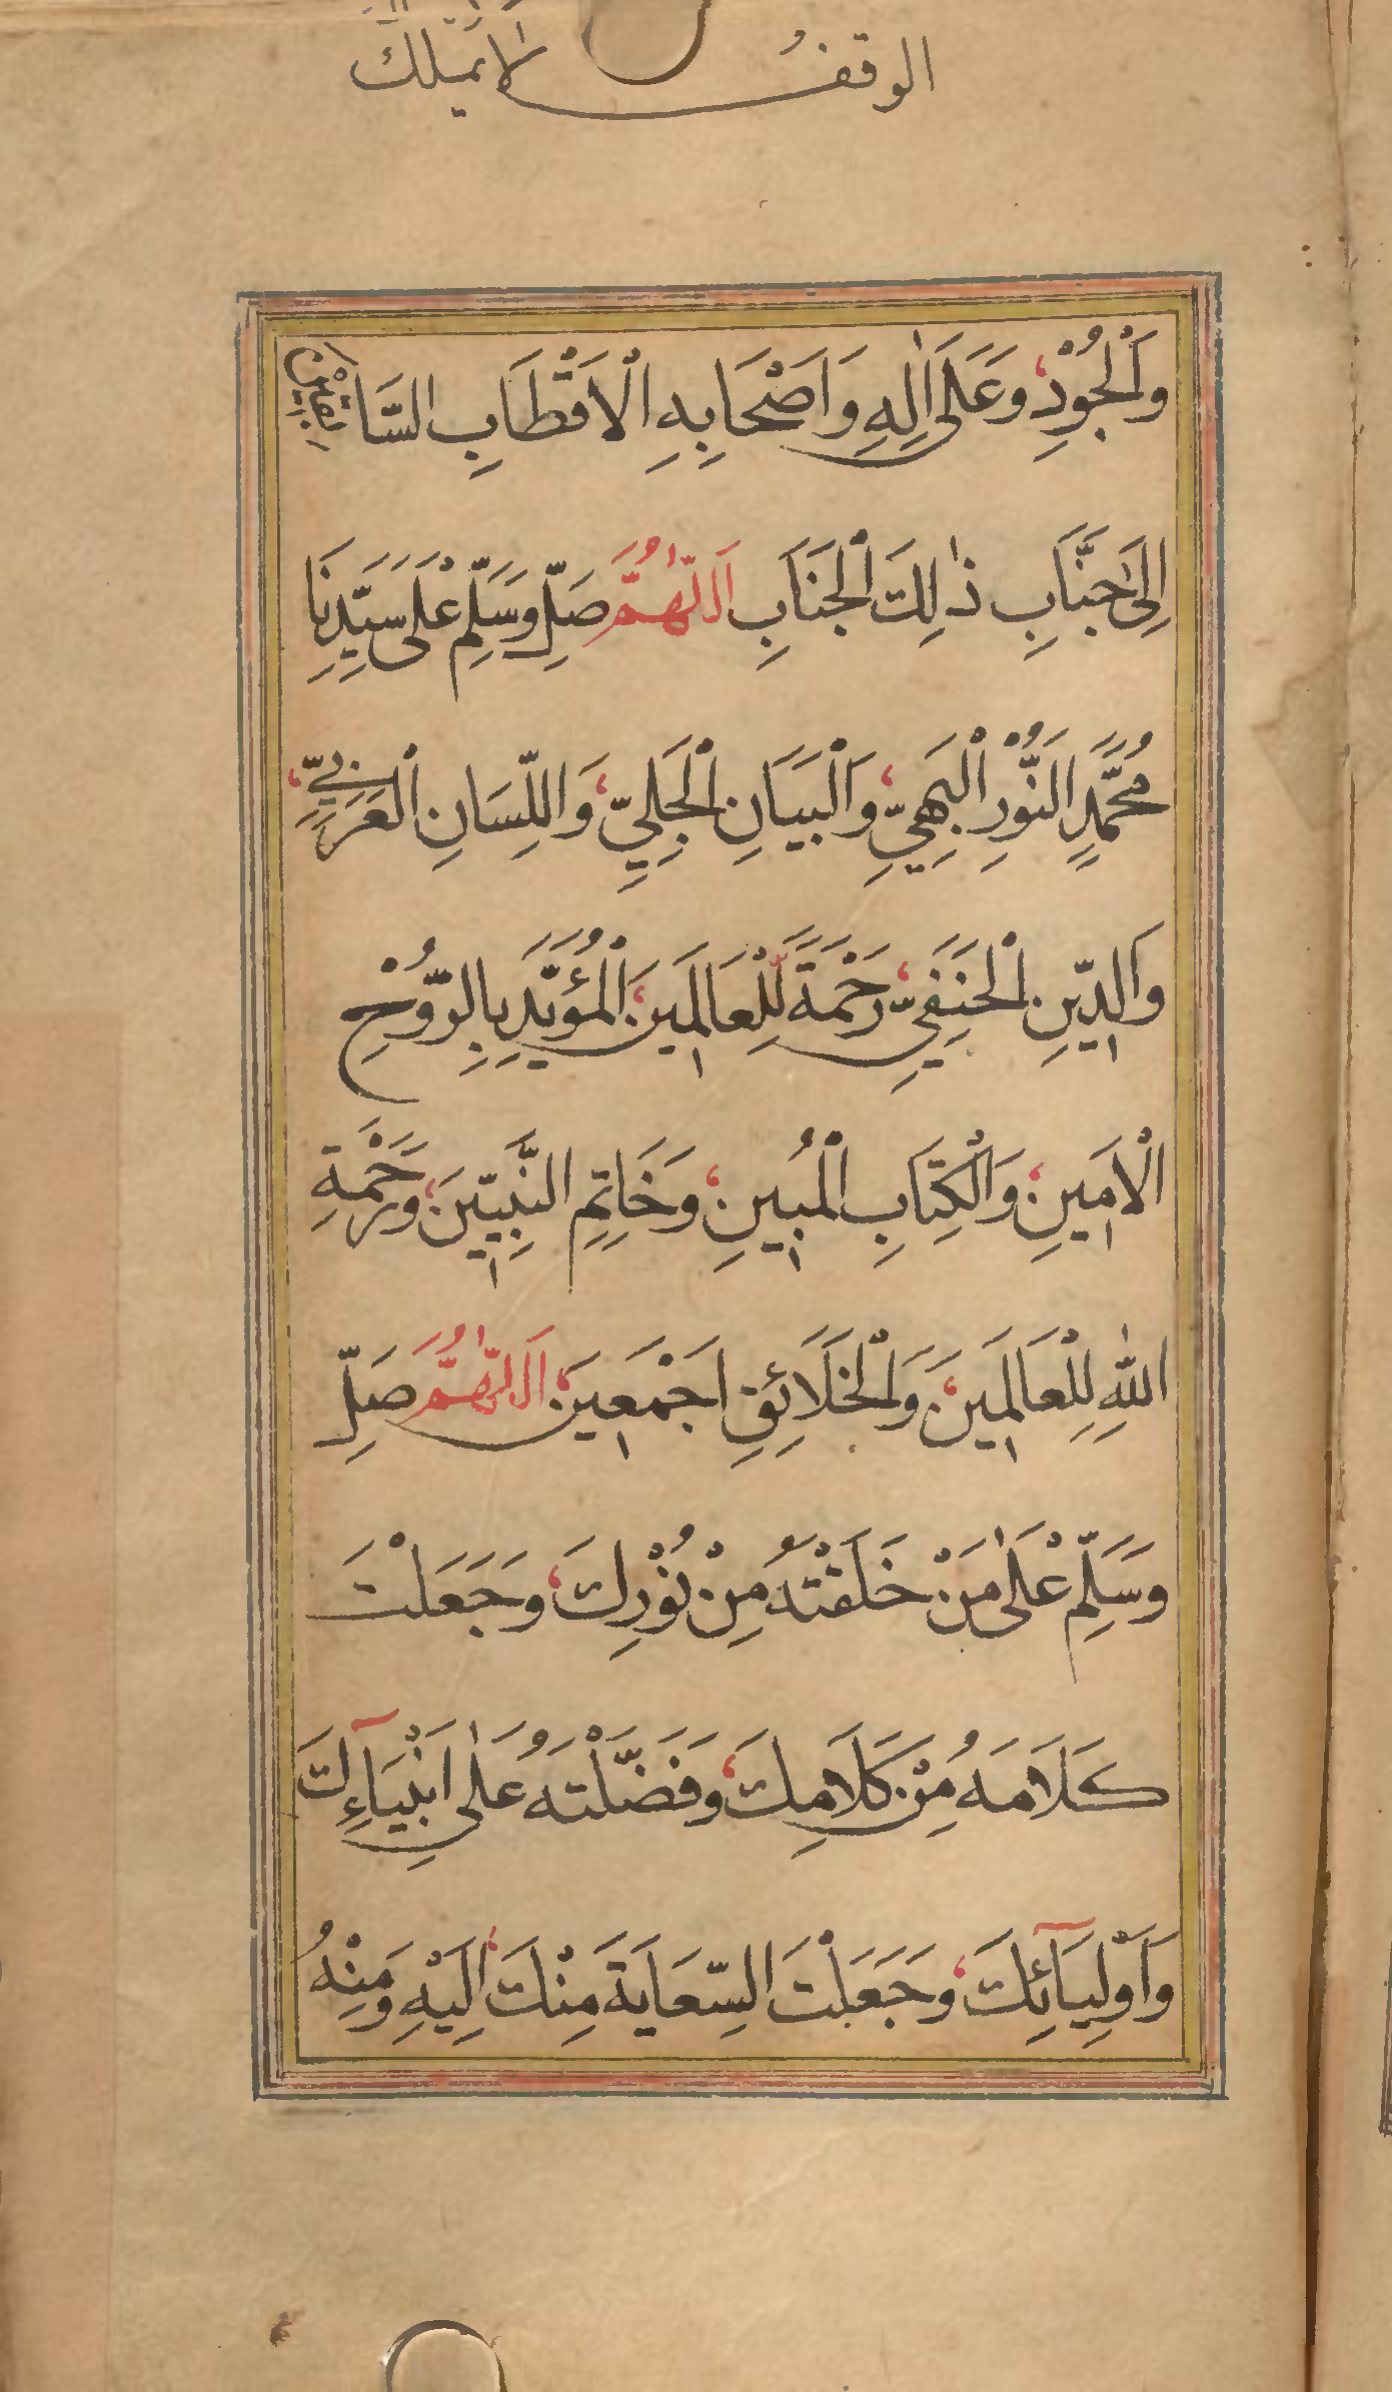 الوقف لايملك
وَالْجُوْدِ، وَعَلَى اٰلِهِ وَاَصْحَابِهِ الْاَقْطَابِ السَّابِقِيْنَ
اِلَىٰ جَنَّابِ ذٰلِكَ الْجَنَابِ اَللّٰهُمَّ صَلِّ وَسَلِّمْ عَلَى سَيِّدِنَا
مُحَمَّدٍ النُّوْرِ الْبَهِيِّ، وَالْبَيَانِ الْجَلِيِّ، وَاللِّسَانِ الْعَرَبِيِّ،
وَالدِّينِ الْحَنَفِيِّ، رَحْمَةً لِلْعَالَمِينَ، الْمُؤَيَّدِ بِالرُّوْحِ
الْاَمِينِ، وَالْكِتَابِ الْمُبِينِ، وَخَاتِمِ النَّبِيّينَ، وَرَحْمَةِ
اللّٰهِ لِلْعَالَمِينَ، وَالْخَلَائِقِ اَجْمَعِينَ، اَللّٰهُمَّ صَلِّ
وَسَلِّمْ عَلٰى مَنْ خَلَقْتَهُ مِنْ نُوْرِكَ، وَجَعَلْتَ
كَلَامَهُ مِنْ كَلَامِكَ، وَفَضَّلْتَهُ عَلٰى اَنْبِيَآءِكَ
وَاَوْلِيَآئِكَ، وَجَعَلْتَ السِّعَايَةَ مِنْكَ اِلَيْهِ وَمِنْهُ